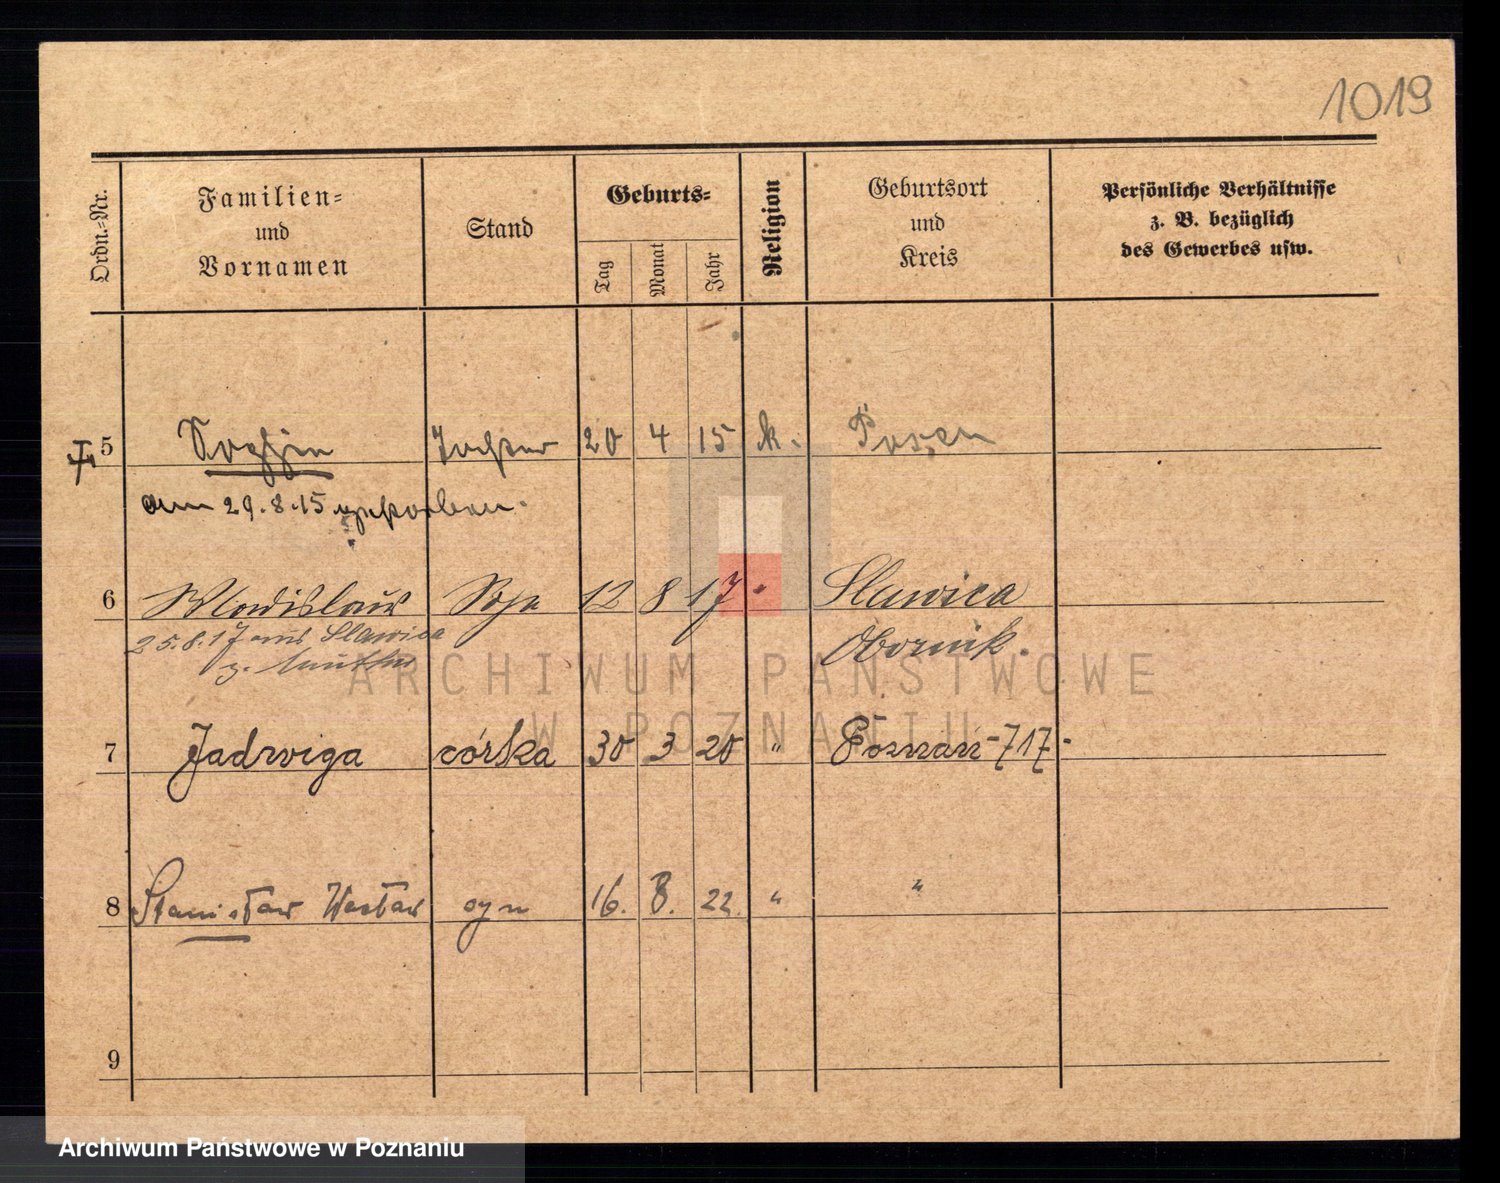 1019
Ordn.-Nr.
Familien-
und
Vornamen
Stand
Geburts-
Tag
Monat
Jahr
Religion
Geburtsort
und
Kreis
Persönliche Verhältnisse
z. B. bezüglich
des Gewerbes usw.
5 Sophie Tochter 20 4 15 k. Posen
am 29.8.15 gestorben.
6 Wladislaus Sohn 12 8 17 " Slawica
25.8.17 aus Slawica Obornik.
z. Mutter
7 Jadwiga córka 30 3 20 " Poznań -717-
8 Stanisław Wacław syn 16. 8. 22. " "
9
ARCHIWUM PAŃSTWOWE
W POZNANIU
Archiwum Państwowe w Poznaniu